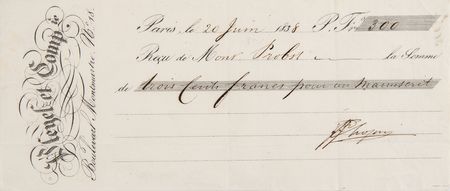 Pleyel et Comp.ie
Boulevart Montmartre, N.o 18.
Paris, le 20 Juin 1838 P. Fr.s 300
Reçu de Mons. Probst la Somme
de trois Cents francs pour un manuscrit
FChopin